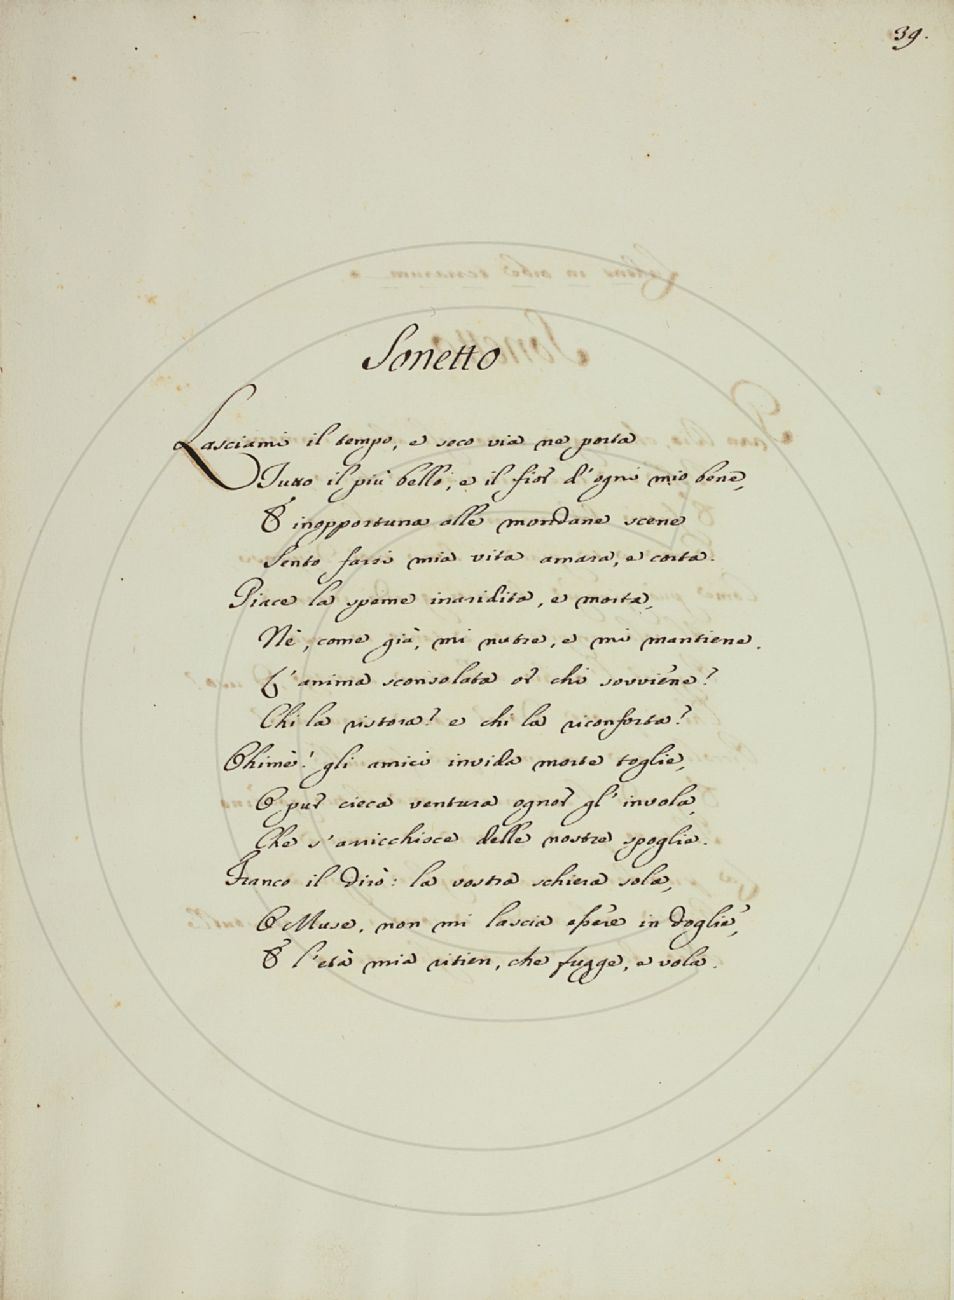 39.
Sonetto
Lasciami il tempo, e seco via ne porta
Tutto il più bello, e il fior d'ogni mio bene,
E inopportuna alle mondane scene
Sento farsi mia vita amara, e corta.
Giace la speme inaridita, e morta,
Nè, come già, mi nutre, e mi mantiene.
L'anima sconsolata or chi sovviene?
Chi la ristora? e chi la riconforta?
Ohimè! gli amici invida morte toglie,
O pur cieca ventura ognor gl'invola,
Che s'arricchisce delle nostre spoglie.
Franco il dirò: la vostra schiera sola,
O Muse, non mi lascia essere in doglie,
E l'età mia ritien, che fugge, e vola.
Sonetto